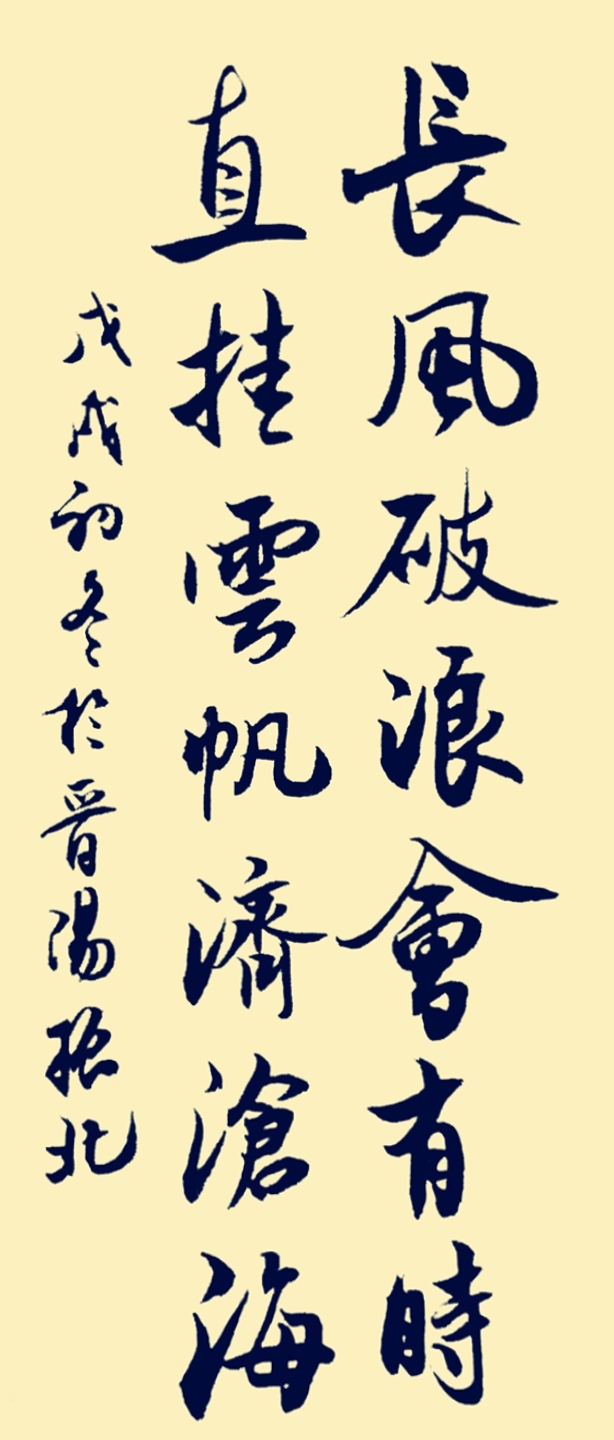 長風破浪會有時
直挂雲帆濟滄海
戊戌初冬於晋陽振北